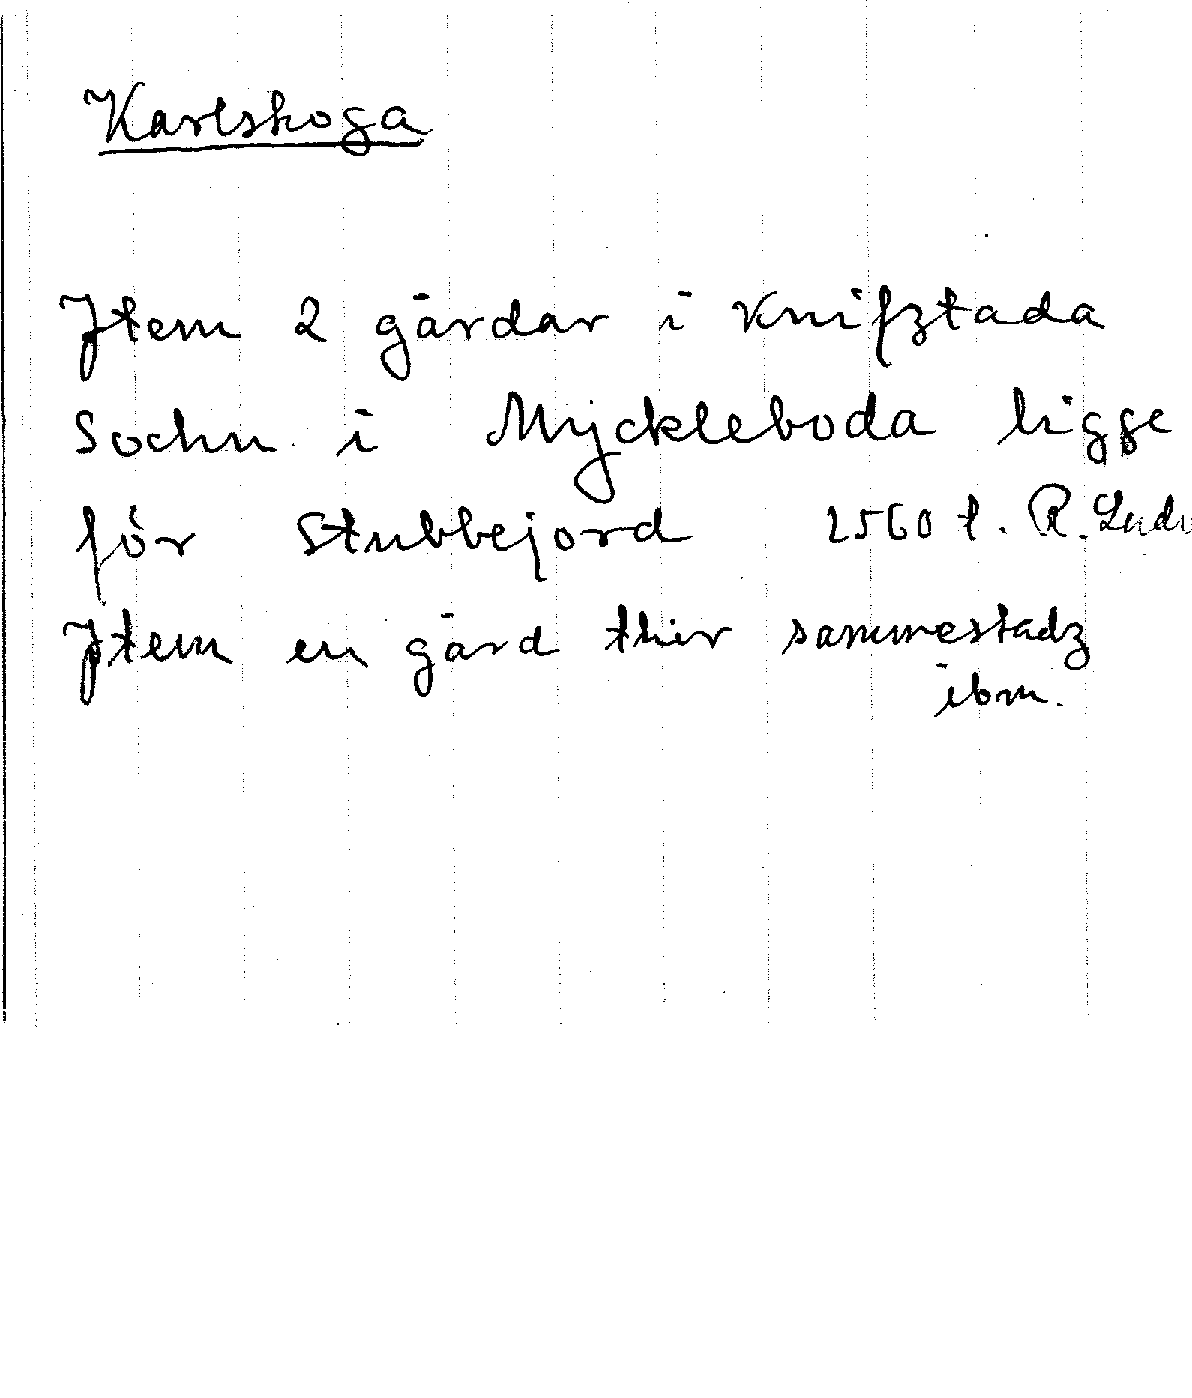 Karlskoga
Jtem 2 gårdar i Knifztada
Sochn i Myckleboda ligge
för Stubbejord 2560 t. R.
Jtem en gård thir sammestadz
ibm.